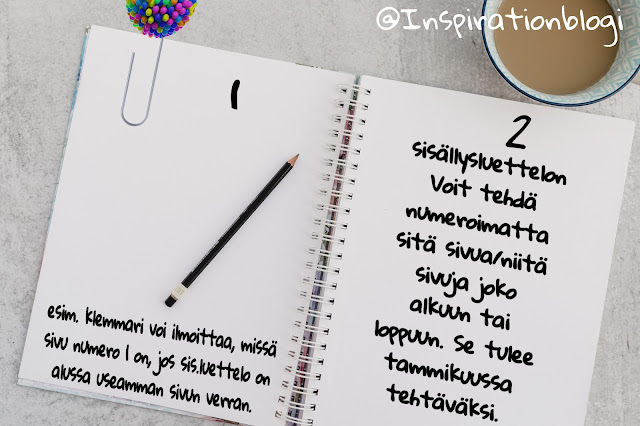 @Inspirationblogi
1
esim. Klemmari voi ilmoittaa, missä
sivu numero 1 on, jos sis.luettelo on
alussa useamman sivun verran.
2
sisällysluettelon
Voit tehdä
numeroimatta
sitä sivua/niitä
sivuja joko
alkuun tai
loppuun. Se tulee
tammikuussa
tehtäväksi.